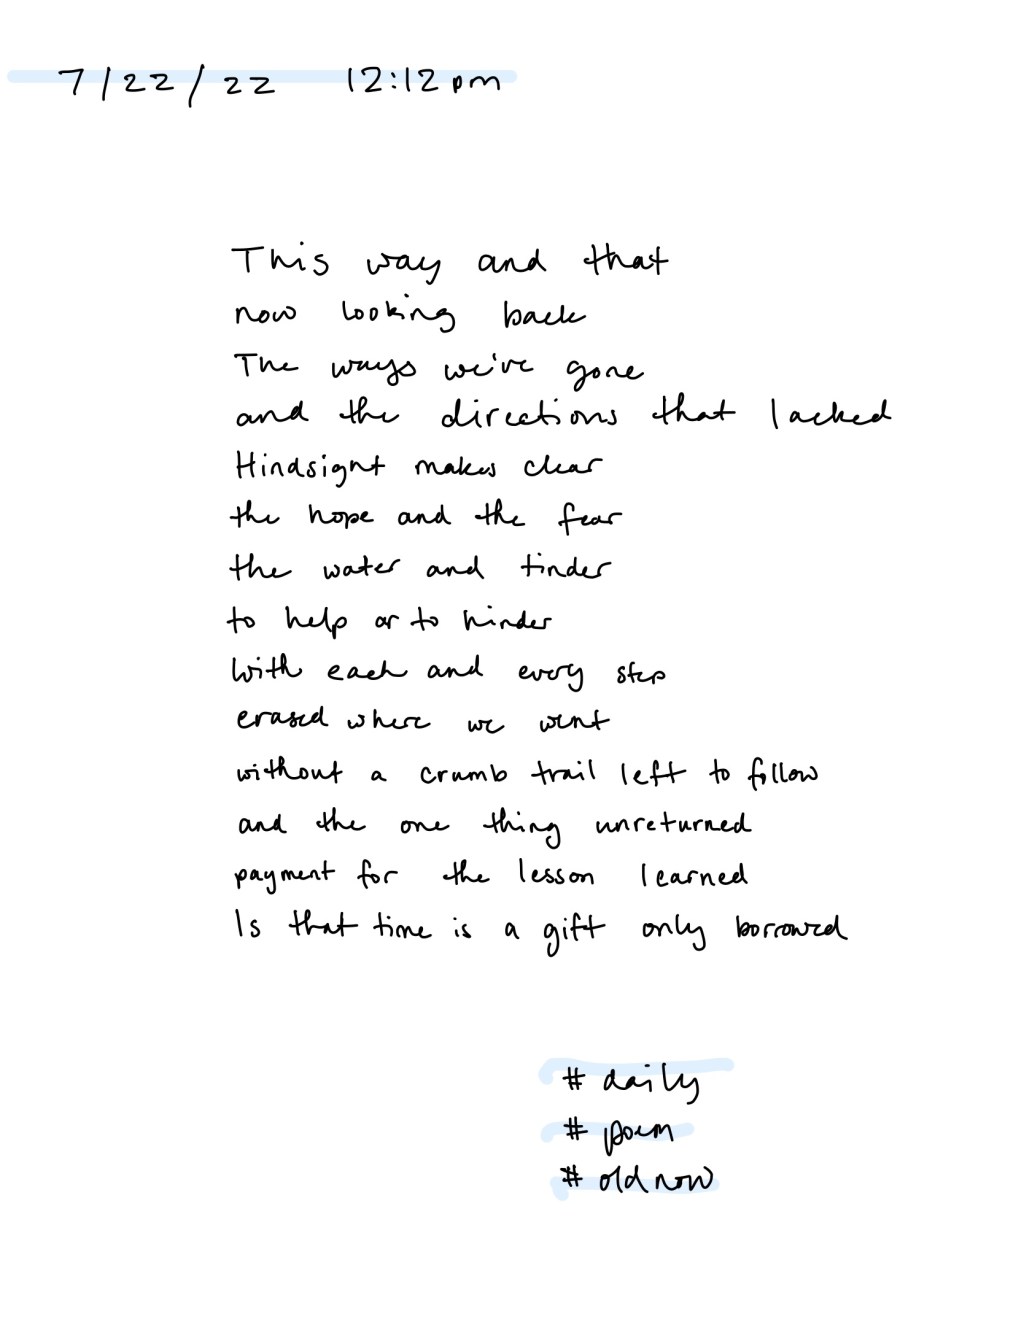 7/22/22 12:12pm
This way and that
now looking back
The ways we've gone
and the directions that lacked
Hindsight makes clear
the hope and the fear
the water and tinder
to help or to hinder
With each and every step
erased where we went
without a crumb trail left to follow
and the one thing unreturned
payment for the lesson learned
Is that time is a gift only borrowed
# daily
# poem
# old now